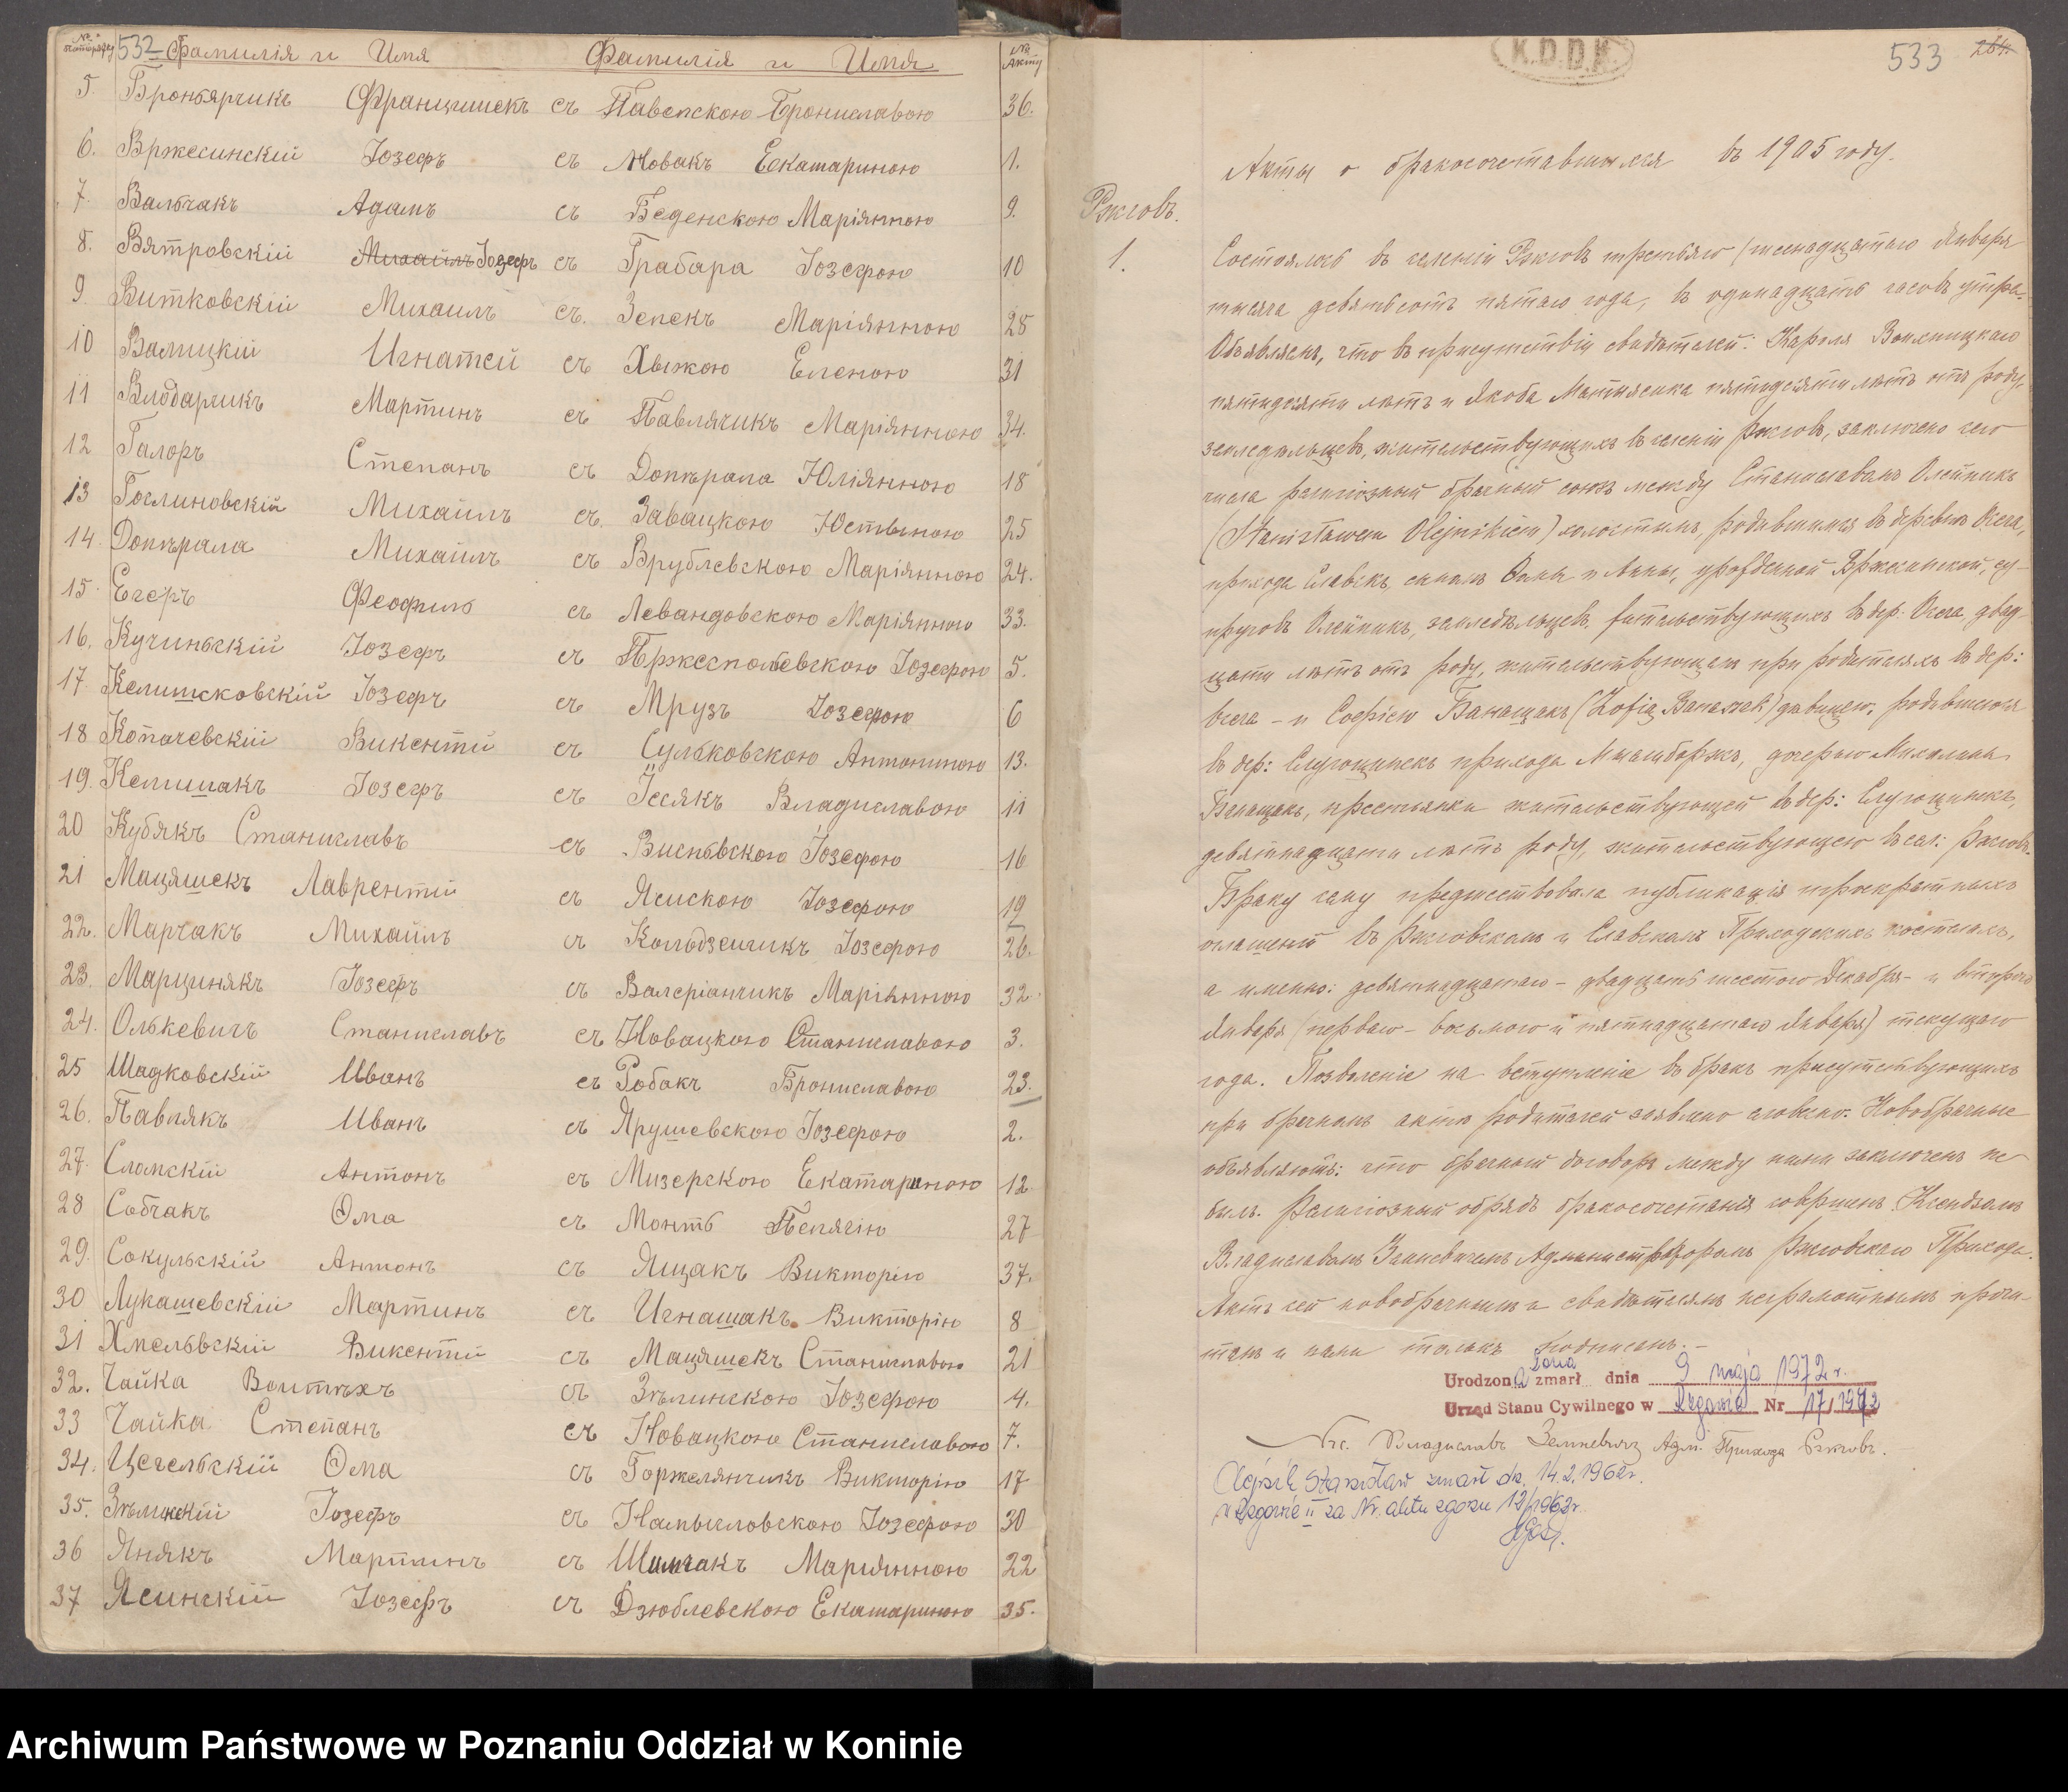 № по порядку 532 Фамилія и Имя Фамилія и Имя № Акту
5 Броньярчикъ Францишекъ съ Павепскою Брониславою 36.
6. Вржесинскій Іозефъ съ Новакъ Екатариною 1.
7. Вальчакъ Адамъ съ Беденскою Маріянною 9.
8. Вятровскій Михаилъ Іозефъ съ Грабара Іозефою 10
9. Витковскій Михаилъ съ. Зепекъ Маріянною 28
10 Валицкій Игнатей съ Хыжою Еленою 31
11 Влодарчикъ Мартинъ съ Павлячикъ Маріянною 34.
12 Галоръ Степанъ съ Допѣрала Юліянною 18
13 Гоглиновскій Михаилъ съ. Завацкою Юстыною 25
14. Допѣрала Михаилъ съ Врублевскою Маріянною 24.
15 Егеръ Феофиль съ Левандовскою Маріянною 33.
16. Кучиньскій Іозефъ съ Пржеспольевскою Іозефою 5.
17. Келишковскій Іозефъ съ Мрузъ Іозефою 6
18 Копачевскій Викентій съ Сульковскою Антониною 13.
19. Келишакъ Іозефъ съ Іесякъ Владиславою 11
20 Кубякъ Станиславъ съ Висньвскою Іозефою 16
21 Мацяшекъ Лаврентій съ Ясискою Іозефою 19
22. Марчакъ Михаилъ съ Колодзейчикъ Іозефою 26.
23. Марцинякъ Іозефъ съ Валеріанчикъ Маріянною 32.
24. Олькевичъ Станиславъ съ Новацкою Станиславою 3.
25 Шадковскій Иванъ съ Робакъ Брониславою 23.
26. Павлякъ Иванъ съ Ярушевскою Іозефою 2.
27. Сломскій Антонъ съ Мизерскою Екатариною 12
28 Собчакъ Ѳма съ Монтъ Пелягію 27
29. Сокульскій Антонъ съ Ящакъ Викторію 37.
30 Лукашевскій Мартинъ съ Игнашакъ Викторію 8
31 Хмельвскій Викентій съ Мацяшекъ Станиславою 21
32. Чайка Войтѣхъ съ Зѣлинскою Іозефою 4.
33 Чайка Степанъ съ Новацкою Станиславою 7.
34. Цегельскій Ѳма съ Горжелянчикъ Викторію 17
35. Зѣлинскій Іозефъ съ Намысловскою Іозефою 30
36 Янякъ Мартинъ съ Шимчакъ Маріянною 22
37 Ясинскій Іозефъ съ Дзюблевскою Екатариною 35.
K.D.D.K. 533 264.
Акты о бракосочетавшихся въ 1905 году.
Ржговъ.
1.
Состоялось въ селеніи Ржговъ третьяго (шестнадцатаго Января
тысяча девятьсотъ пятаго года, въ одинадцать часовъ утра.
Объявляемъ, что въ присутствіи свидѣтелей: Кароля
пятидесяти лѣтъ и Якоба Матысяка пятидесяти лѣтъ отъ роду,
земледѣльцевъ, жительствующихъ въ селеніи Ржговъ, заключено сего
числа религіозный брачный союзъ между Станиславомъ Олейникъ
(Stanisławem Olejnikiem) холостымъ, родившимся въ деревнѣ
прихода Славскъ, сыномъ и Анны, урожденной Вржесинской, су-
пруговъ Олейникъ, земледѣльцевъ жительствующихъ въ дер. двад-
цати лѣтъ отъ роду, жительствующимъ при родителяхъ въ дер:
и Софіею Банащакъ (Zofią Banaszak) дѣвицею, родившеюся
въ дер: прихода дочерью Михалины
Банащакъ, крестьянки жительствующей въ дер:
девятнадцати лѣтъ роду, жительствующею въ сел: Ржговъ.
Браку сему предшествовала публикація троекратныхъ
оглашеній въ Ржговскомъ и Славскомъ Приходскихъ костелахъ,
а именно: девятнадцатаго – двадцать шестого Декабря – и второго
Января (перваго – восьмого и пятнадцатаго Января) текущаго
года. Позволеніе на вступленіе въ бракъ присутствующихъ
при брачномъ актѣ родителей заявлено словесно. Новобрачные
объявляютъ: что брачный договоръ между ними заключенъ не
былъ. Религіозный обрядъ бракосочетанія совершенъ Ксендзомъ
Владиславомъ Администраторомъ Ржговскаго Прихода.
Актъ сей новобрачнымъ и свидѣтелямъ неграмотнымъ прочи-
танъ и нами только подписанъ. –
Zofia
Urodzona zmarł dnia 9 maja 1972 r.
Urząd Stanu Cywilnego w Rzgowie Nr 17/1972
Кс. Владиславъ Адм. Прихода Ржговъ.
Olejnik Stanisław zmarł dn. 14.2.1962r.
w Rzgowie II za Nr. aktu zgonu 12/1962r.